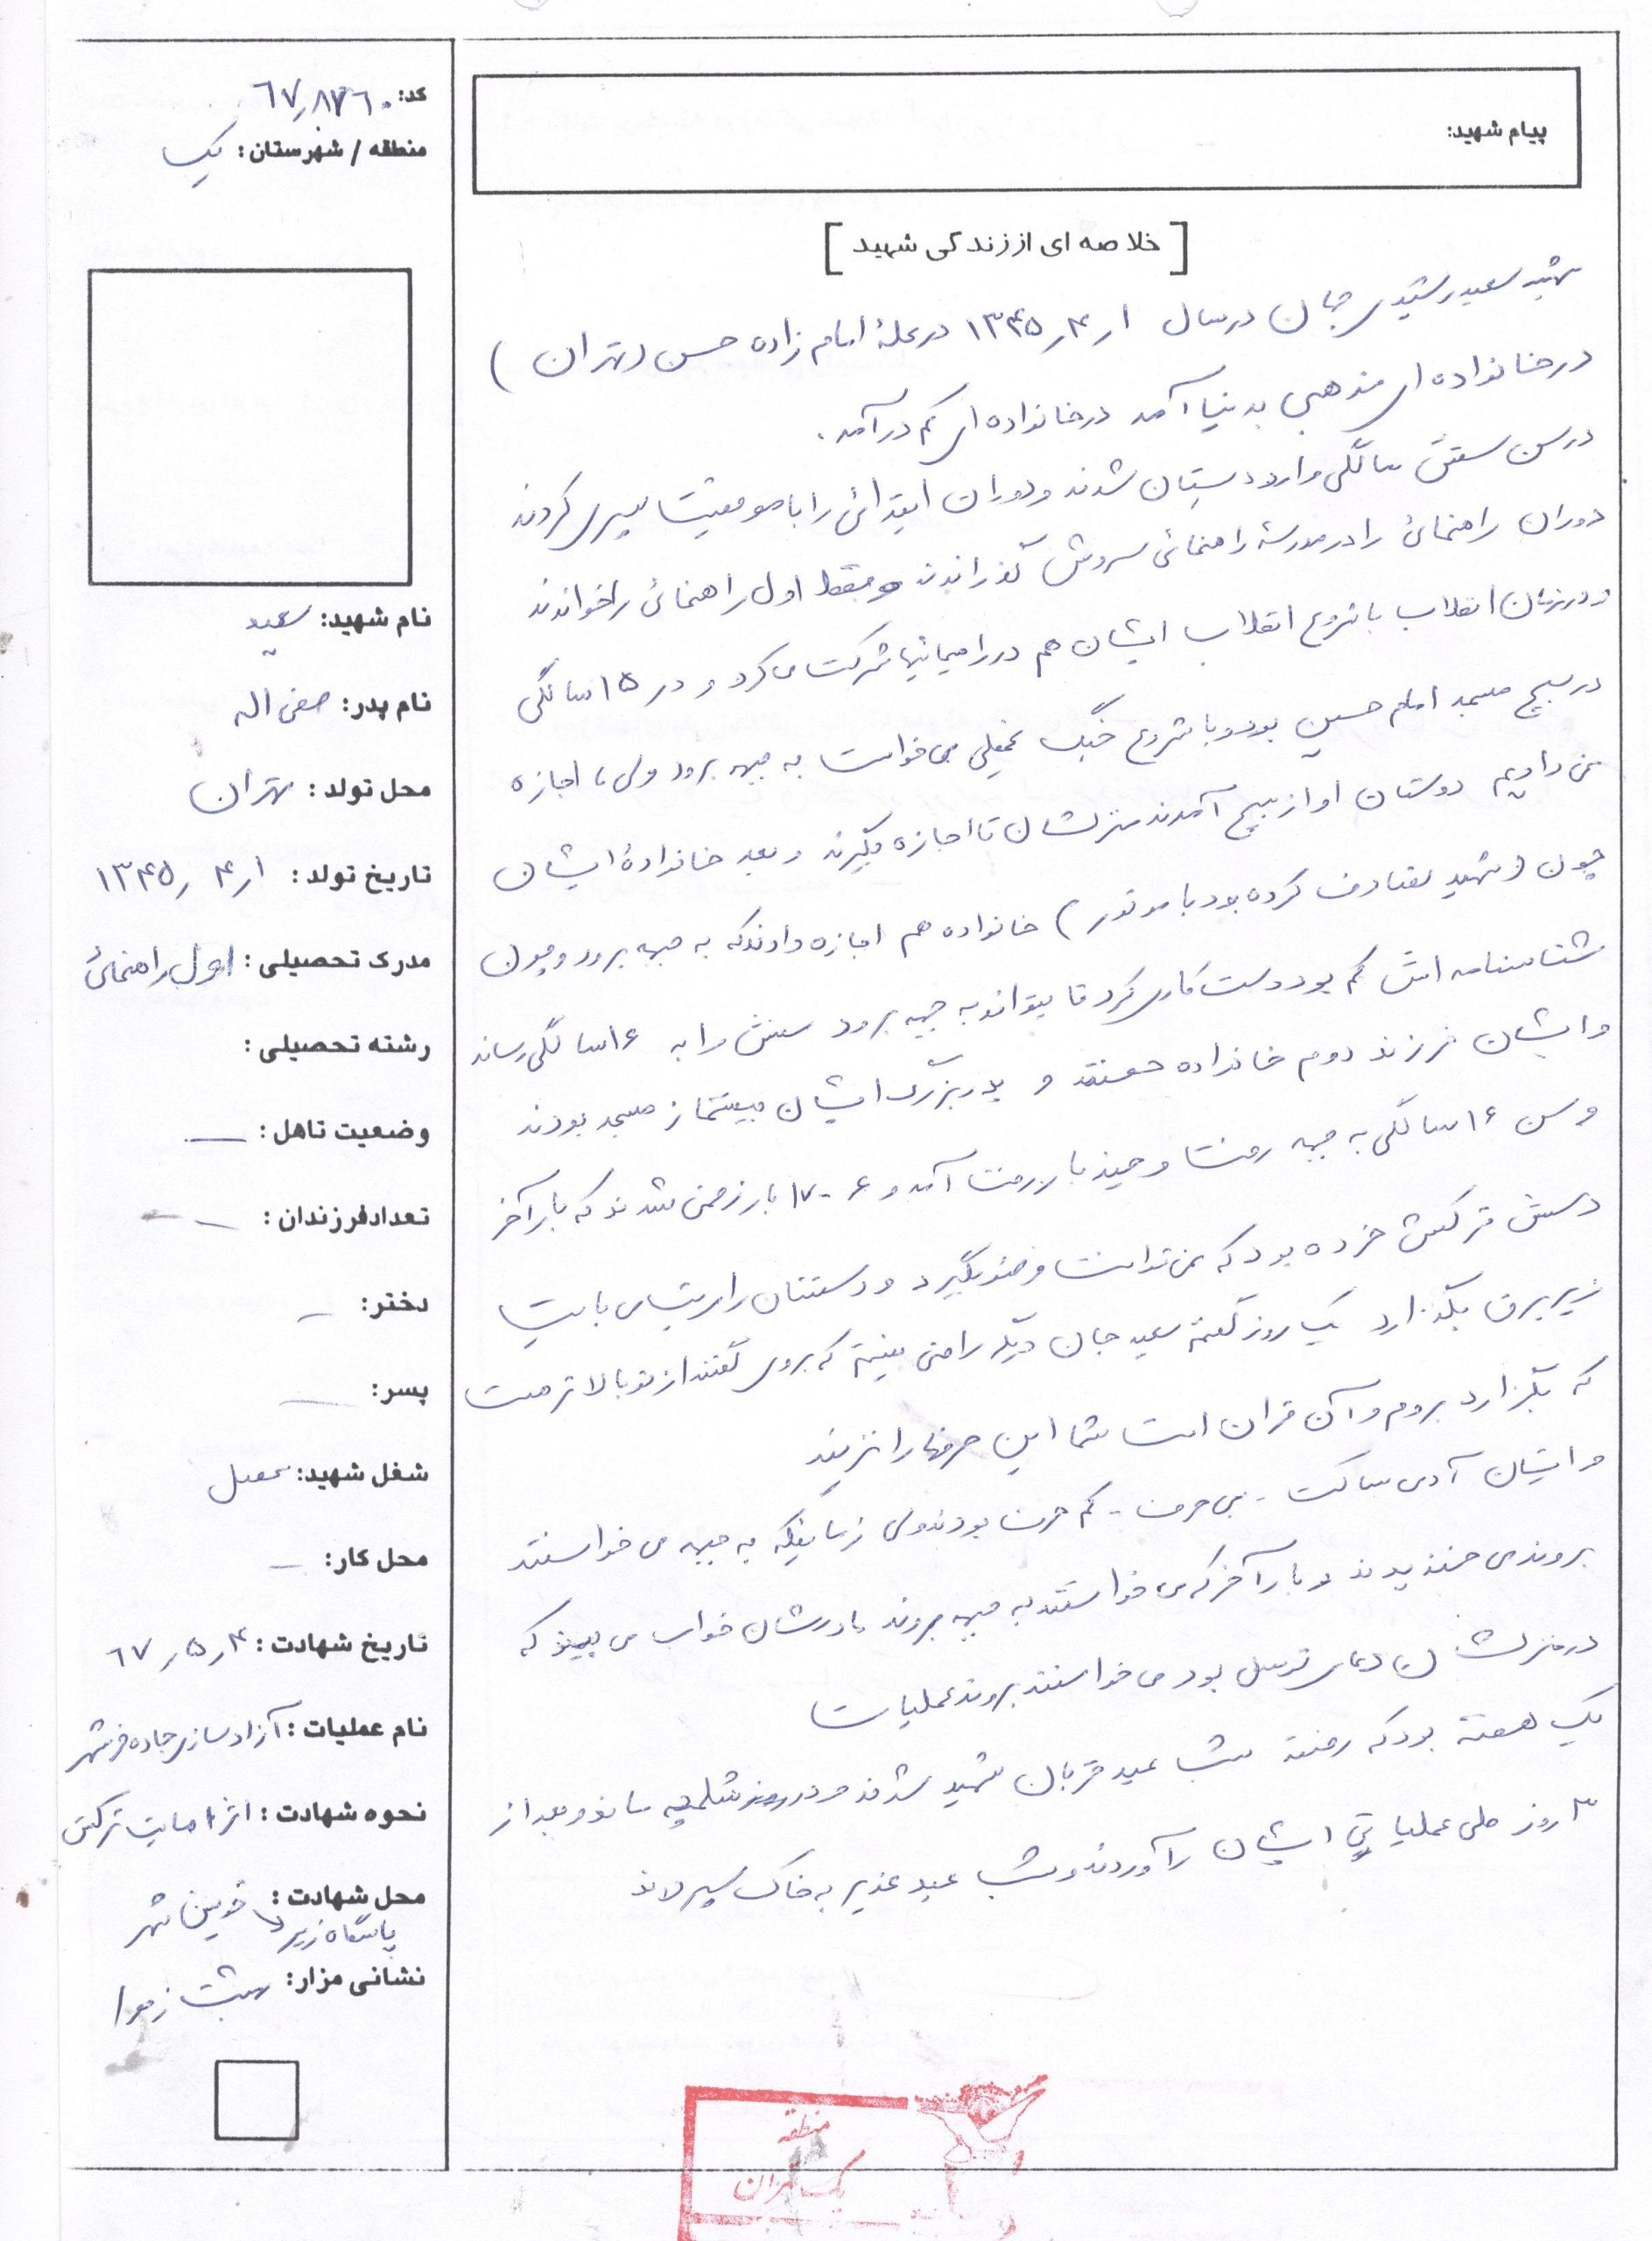 پیام شهید:
[خلاصه ای از زندگی شهید]
شهید سعید رشیدی جهان در سال ۱٫۴٫۱۳۴۵ در محلهٔ امام زاده حسن (تهران)
در خانواده ای مذهبی بدنیا آمد در خانواده ای کم درآمد.
در سن شش سالگی وارد دبستان شدند و دوران ابتدائی را با موفقیت سپری کردند
دوران راهنمائی را در مدرسهٔ راهنمائی سروش گذراندند و فقط اول راهنمائی را خواندند
و در زمان انقلاب با شروع انقلاب ایشان هم در راهپیمائیها شرکت می کرد و در ۱۵ سالگی
در بسیج مسجد امام حسین بود و با شروع جنگ تحمیلی می خواست به جبهه برود ولی ما اجازه
نمی دادیم دوستان او از بسیج آمدند منزلشان تا اجازه بگیرند و بعد خانوادهٔ ایشان
چون (شهید تصادف کرده بود با موتور) خانواده هم اجازه دادند که به جبهه برود و چون
شناسنامه اش کم بود دست کاری کرد تا بتواند به جبهه برود سنش را به ۱۶ سالگی رساند
و ایشان فرزند دوم خانواده هستند و پدربزرگ ایشان پیشنماز مسجد بودند
و سن ۱۶ سالگی به جبهه رفت و چند بار رفت آمد و ۶-۷ بار زخمی شدند که بار آخر
دستش ترکش خرده بود که نمی توانست وضو بگیرد و دستتان را بایست
زیر برق بگذارد یک روز گفتم سعید جان دیگر راضی نیستم که بروی گفتند از تو بالاتر هست
که بگذارد بروم و آن قران است شما این حرفها را نزنید
و ایشان آدمی ساکت - بی حرف - کم حرف بودند ولی زمانیکه به جبهه می خواستند
بروند می خندیدند و بار آخر که می خواستند به جبهه بروند مادرشان خواب می بیند که
در منزلشان دعای توسل بود می خواستند بروند عملیات
یک هفته بود که رفته شب عید قربان شهید شدند و در شلمچه ماند و بعد از
۳ روز طی عملیاتی ایشان را آوردند و شب عید غدیر به خاک سپردند
کد: ٦٧٫٨٧٦٠
منطقه / شهرستان: یک
نام شهید: سعید
نام پدر: صفی اله
محل تولد: تهران
تاریخ تولد: ۱٫۴٫۱۳۴۵
مدرک تحصیلی: اول راهنمائی
رشته تحصیلی:
وضعیت تاهل: —
تعدادفرزندان: —
دختر: —
پسر: —
شغل شهید: محصل
محل کار: —
تاریخ شهادت: ۴٫۵٫٦٧
نام عملیات: آزادسازی جاده خرمشهر
نحوه شهادت: اثر اصابت ترکش
محل شهادت: خونین شهر
پاسگاه زید
نشانی مزار: بهشت زهرا
منطقه
یک تهران